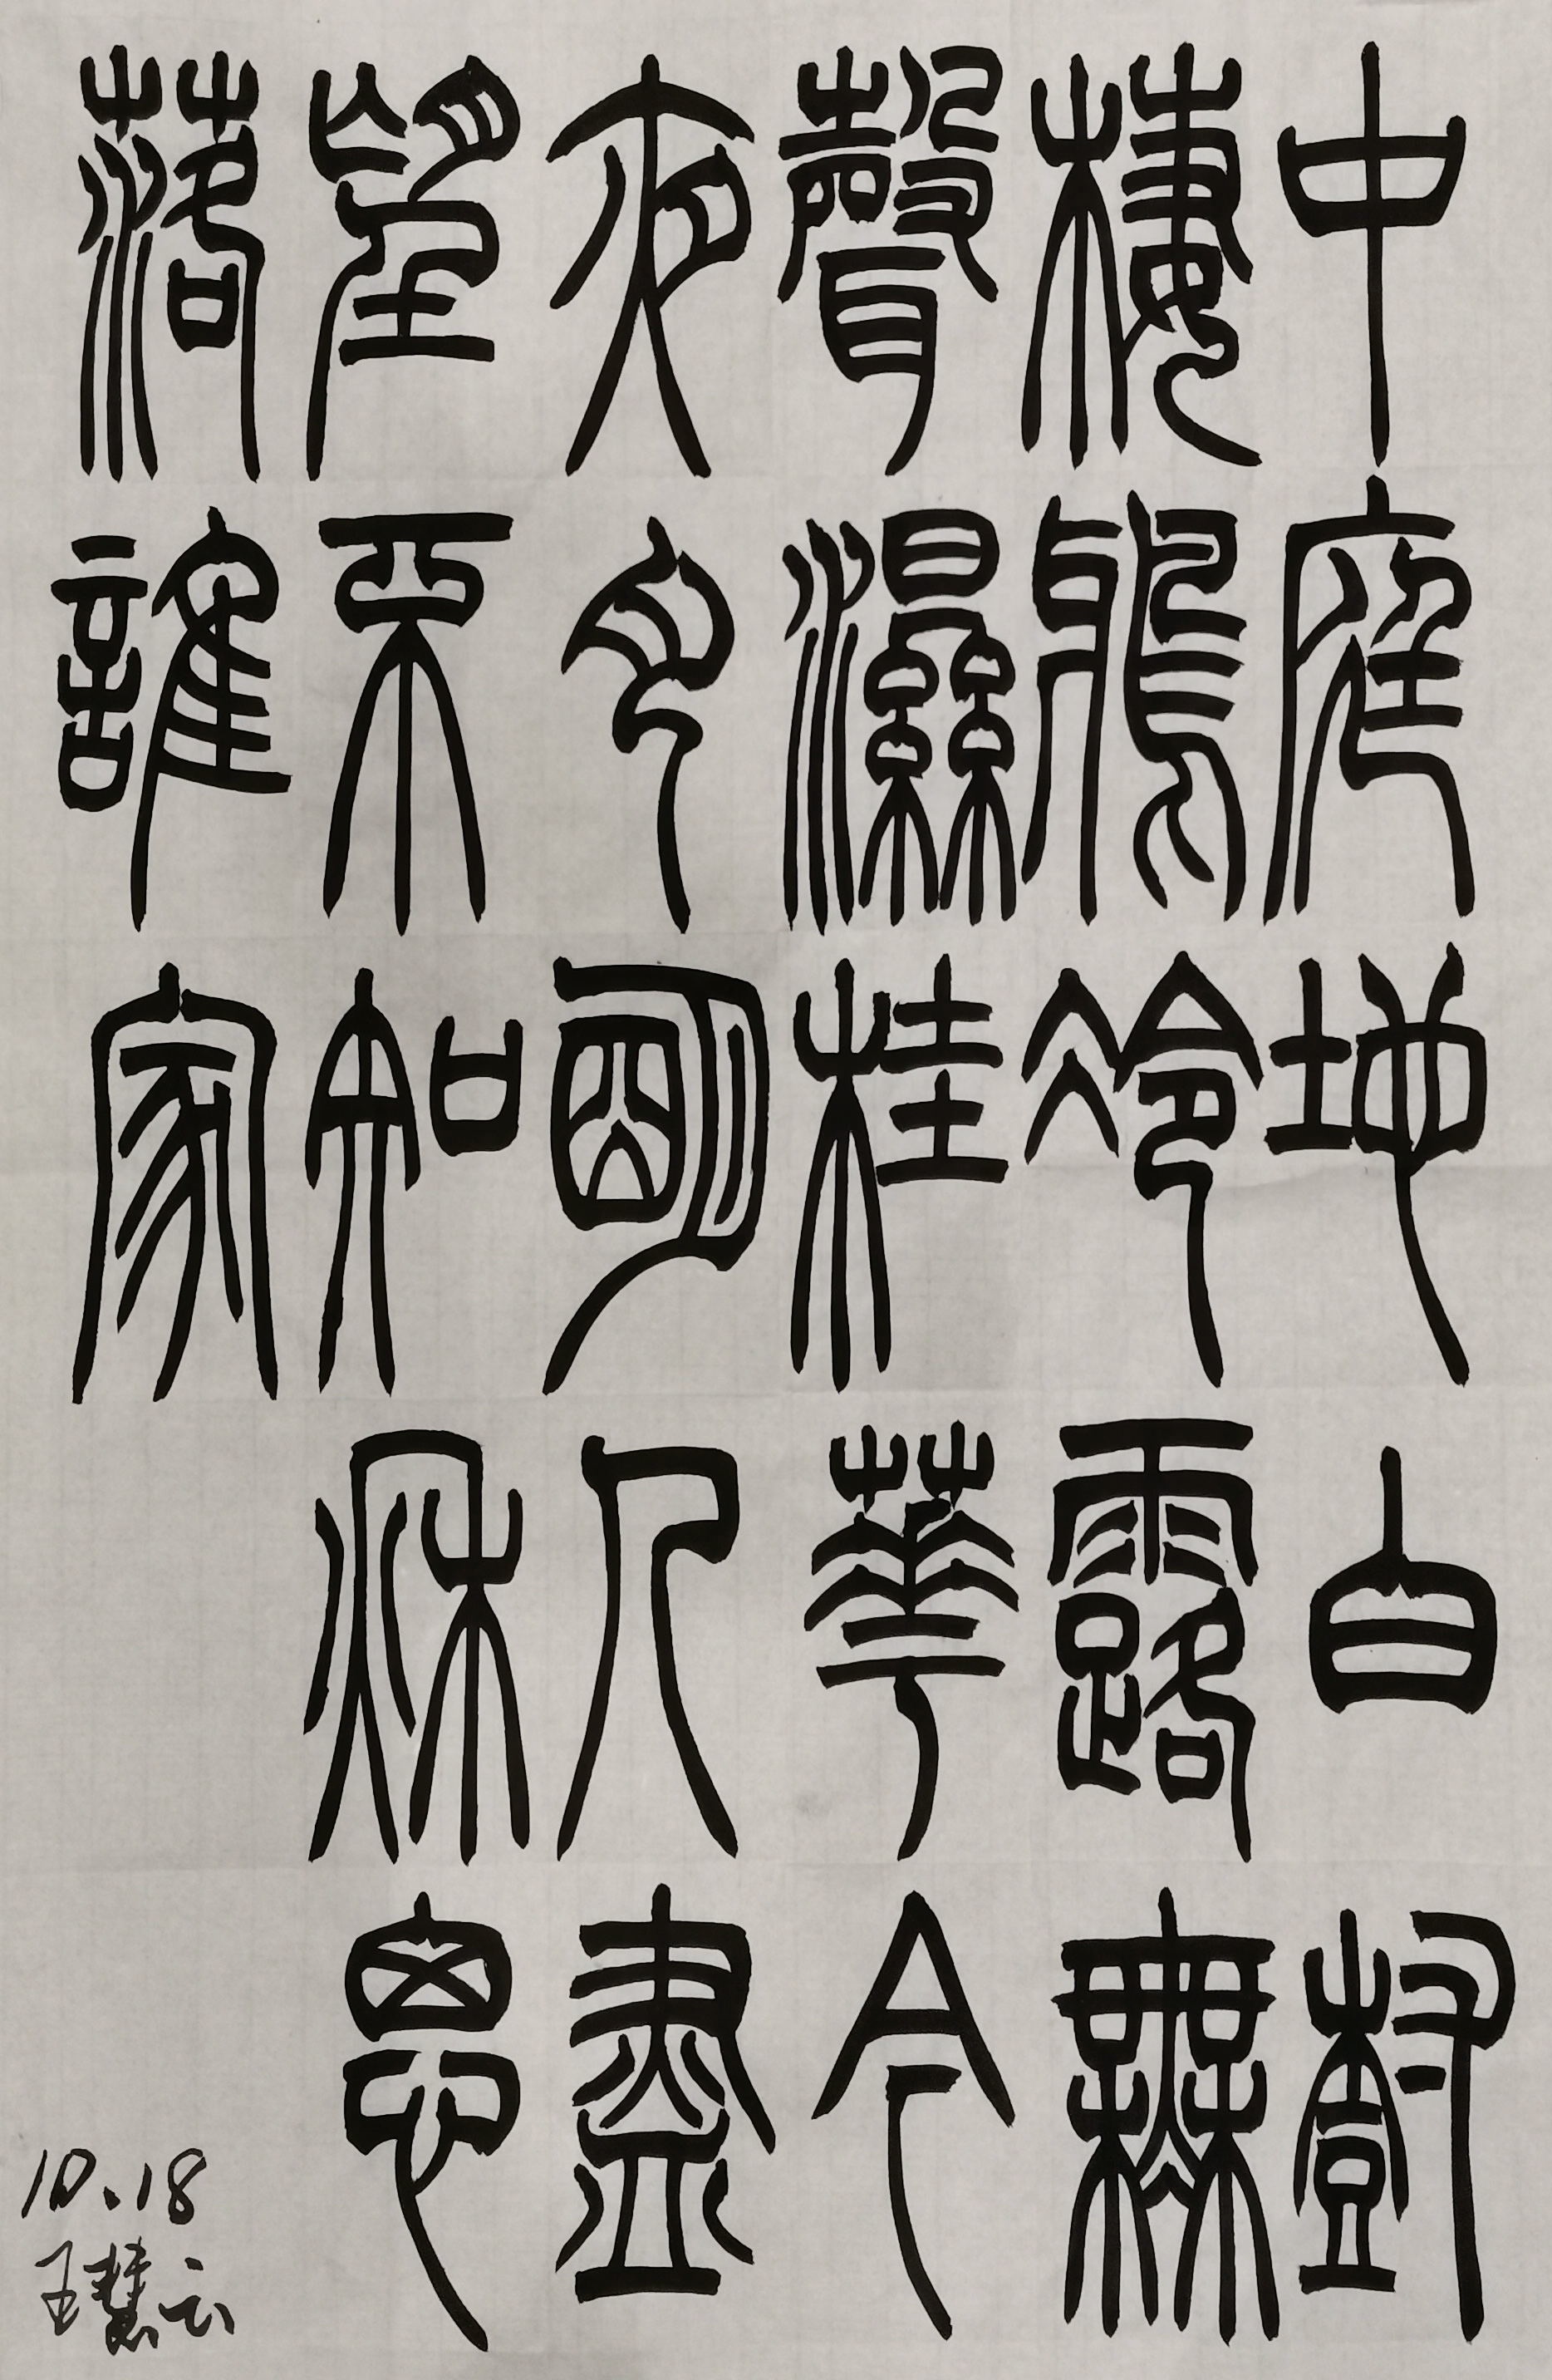 中庭地白樹
棲鴉冷露無
聲濕桂華今
夜月明人盡
望不知秋思
落誰家
10.18
王慧云